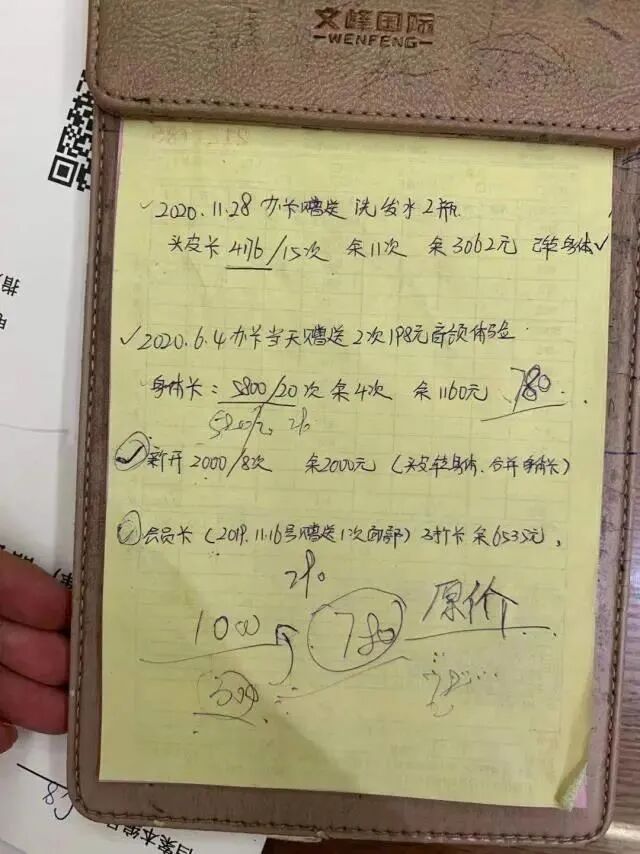 文峰国际
WENFENG
2020.11.28 办卡赠送 洗发水2瓶.
头皮卡 4176/15次 余11次 余3062元 已转身体
2020.6.4 办卡当天赠送2次198元肩颈体验
身体卡: 5800/20次 余4次 余1160元 780
新开2000/8次 余2000元 (头皮转身体.合并身体卡)
会员卡 (2019.11.16号赠送1次面部) 2折卡 余6535元.
2折
1000 780 原价
300